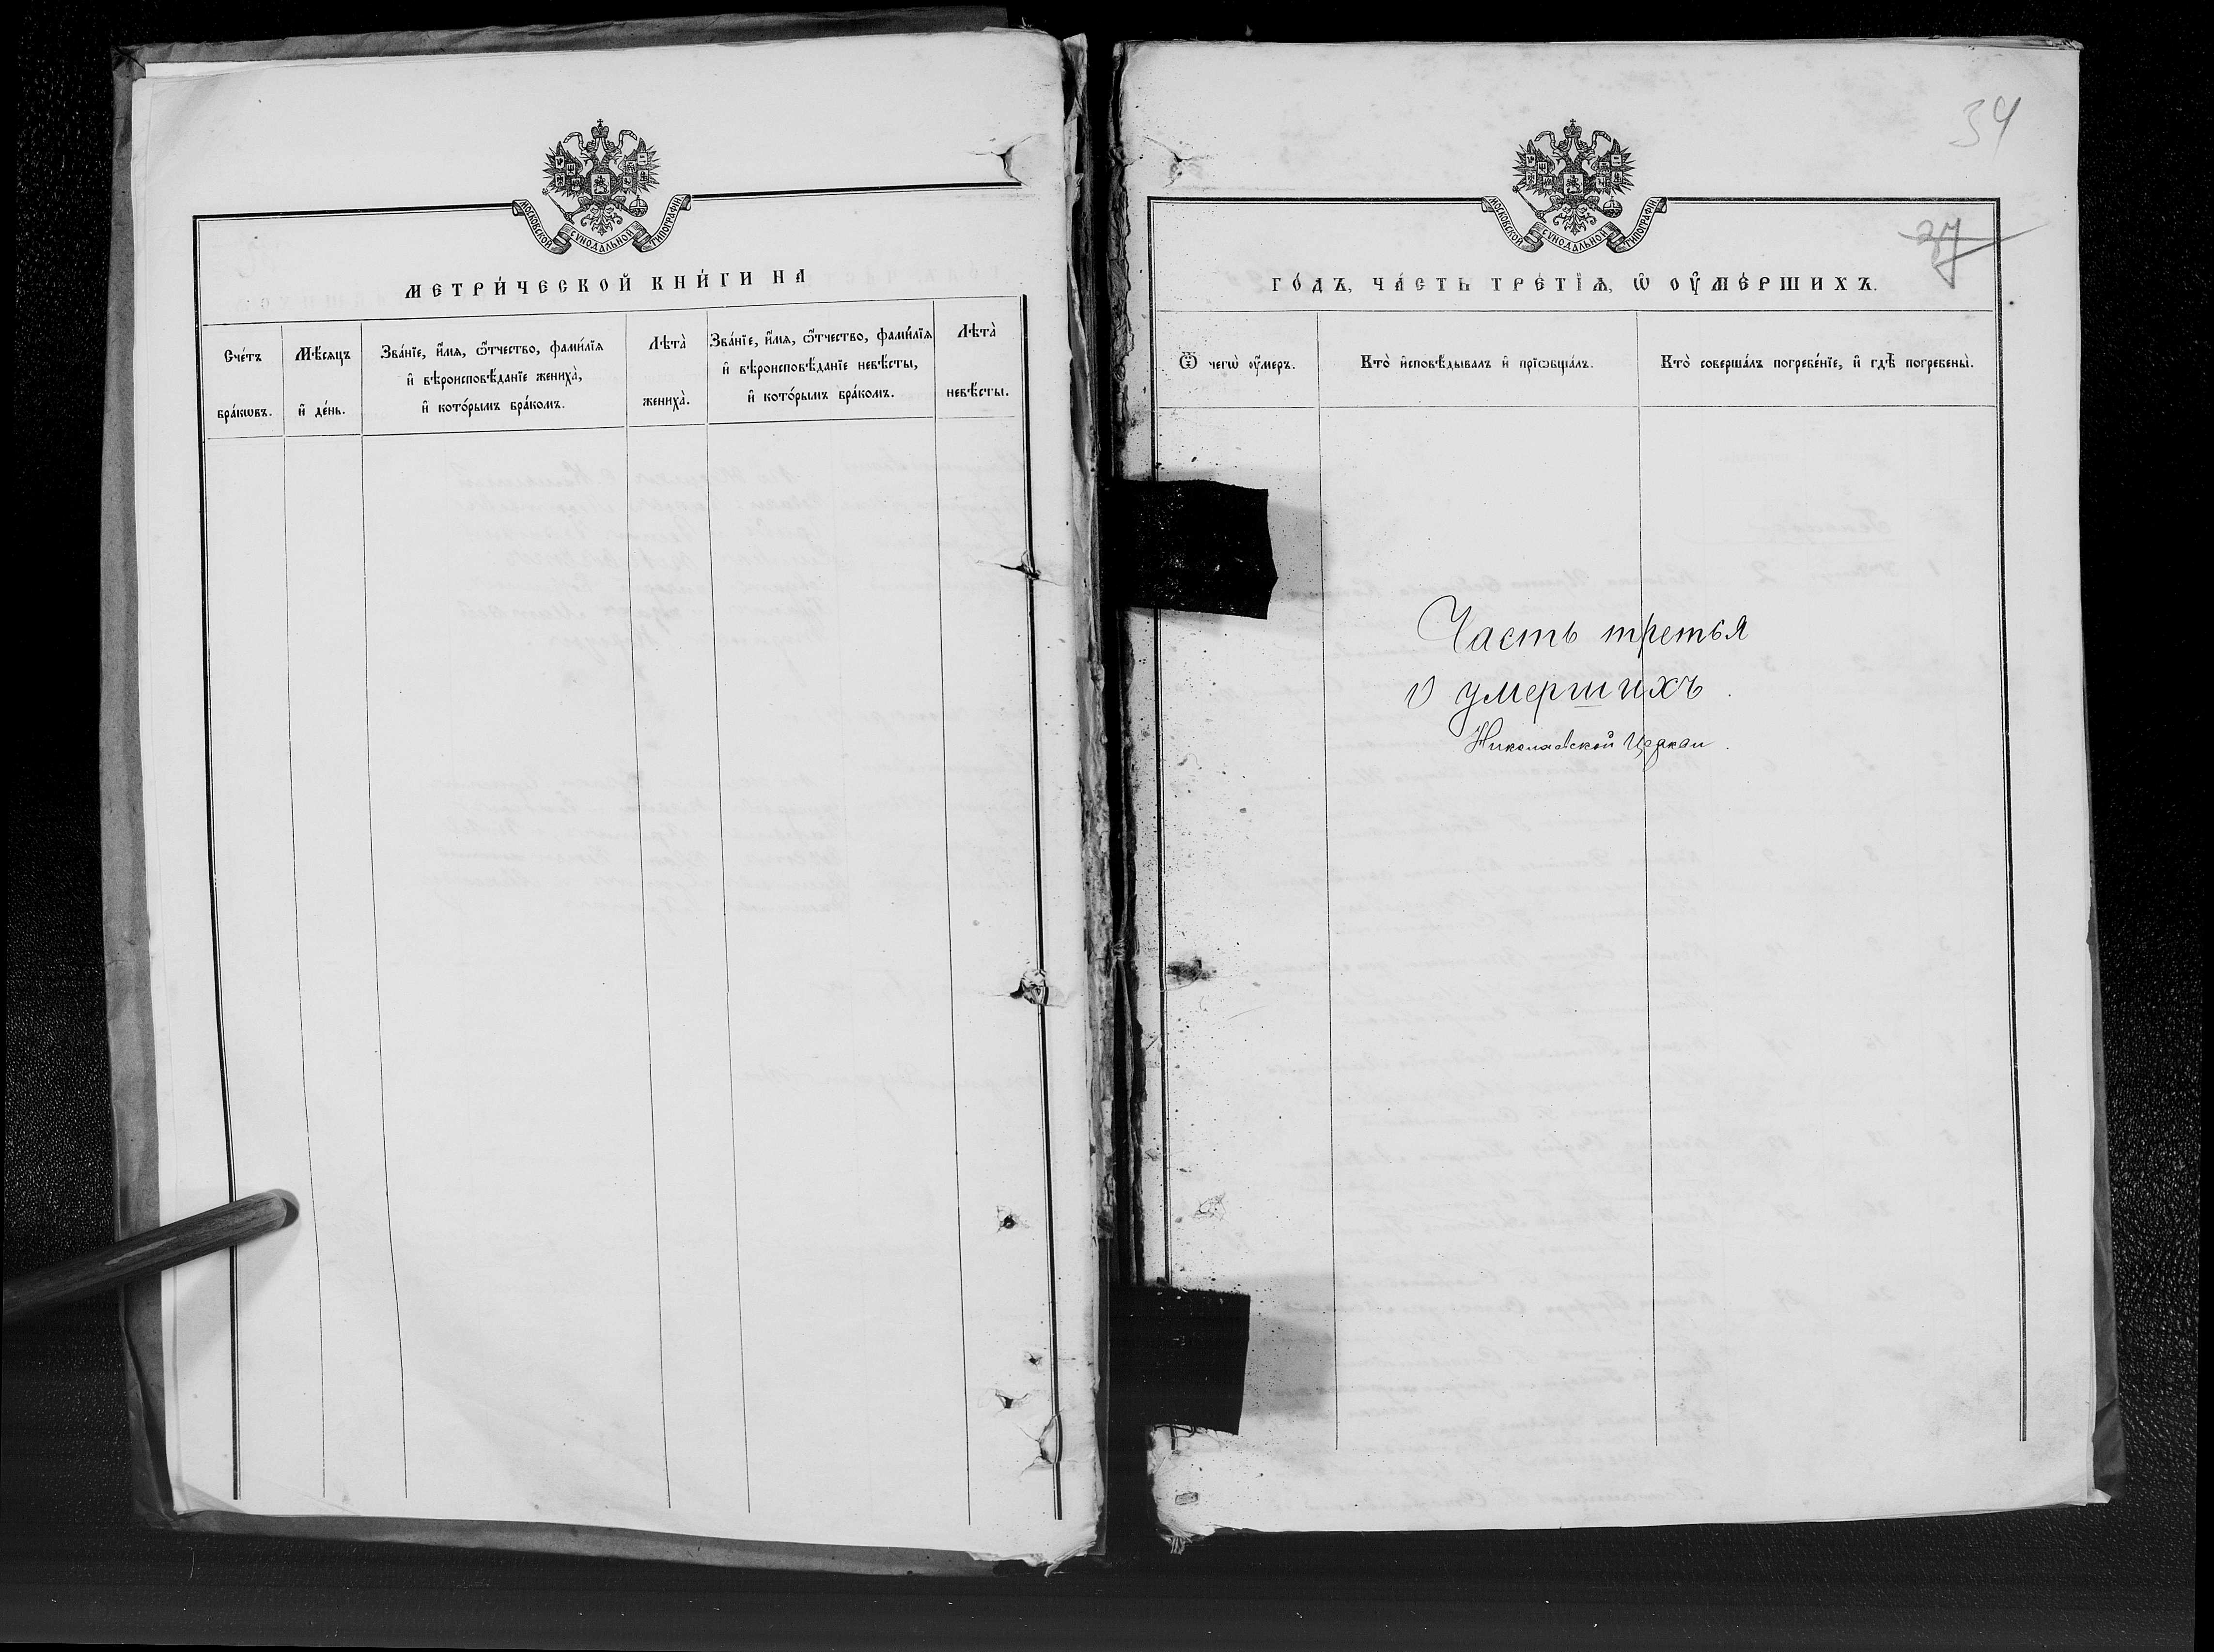 МОСКОВСКОЙ СѴНОДАЛЬНОЙ ТИПОГРАФІИ
МЕТРИ́ЧЕСКОЙ КНИ́ГИ НА
Сче́тъ бра́кѡвъ.
Мѣ́сяцъ и҆ де́нь.
Зва́нїе, и҆́мѧ, ѻ҆́тчество, фами́лїѧ
и҆ вѣроисповѣ́данїе жениха̀,
и҆ кото́рымъ бра́комъ.
Лѣта̀ жениха̀.
Зва́нїе, и҆́мѧ, ѻ҆́тчество, фами́лїѧ
и҆ вѣроисповѣ́данїе невѣ́сты,
и҆ кото́рымъ бра́комъ.
Лѣта̀ невѣ́сты.
34
37
МОСКОВСКОЙ СѴНОДАЛЬНОЙ ТИПОГРАФІИ
ГО́ДЪ, ЧА́СТЬ ТРЕ́ТЇѦ, Ѡ҆ ОУ҆МЕ́РШИХЪ.
Ѿ чегѡ̀ оу҆́меръ.
Кто̀ и҆сповѣ́дывалъ и҆ прїѡбща́лъ.
Кто̀ соверша́лъ погребе́нїе, и҆ гдѣ̀ погребены̀.
Часть третья
о умершихъ
Николаевской Церкви.